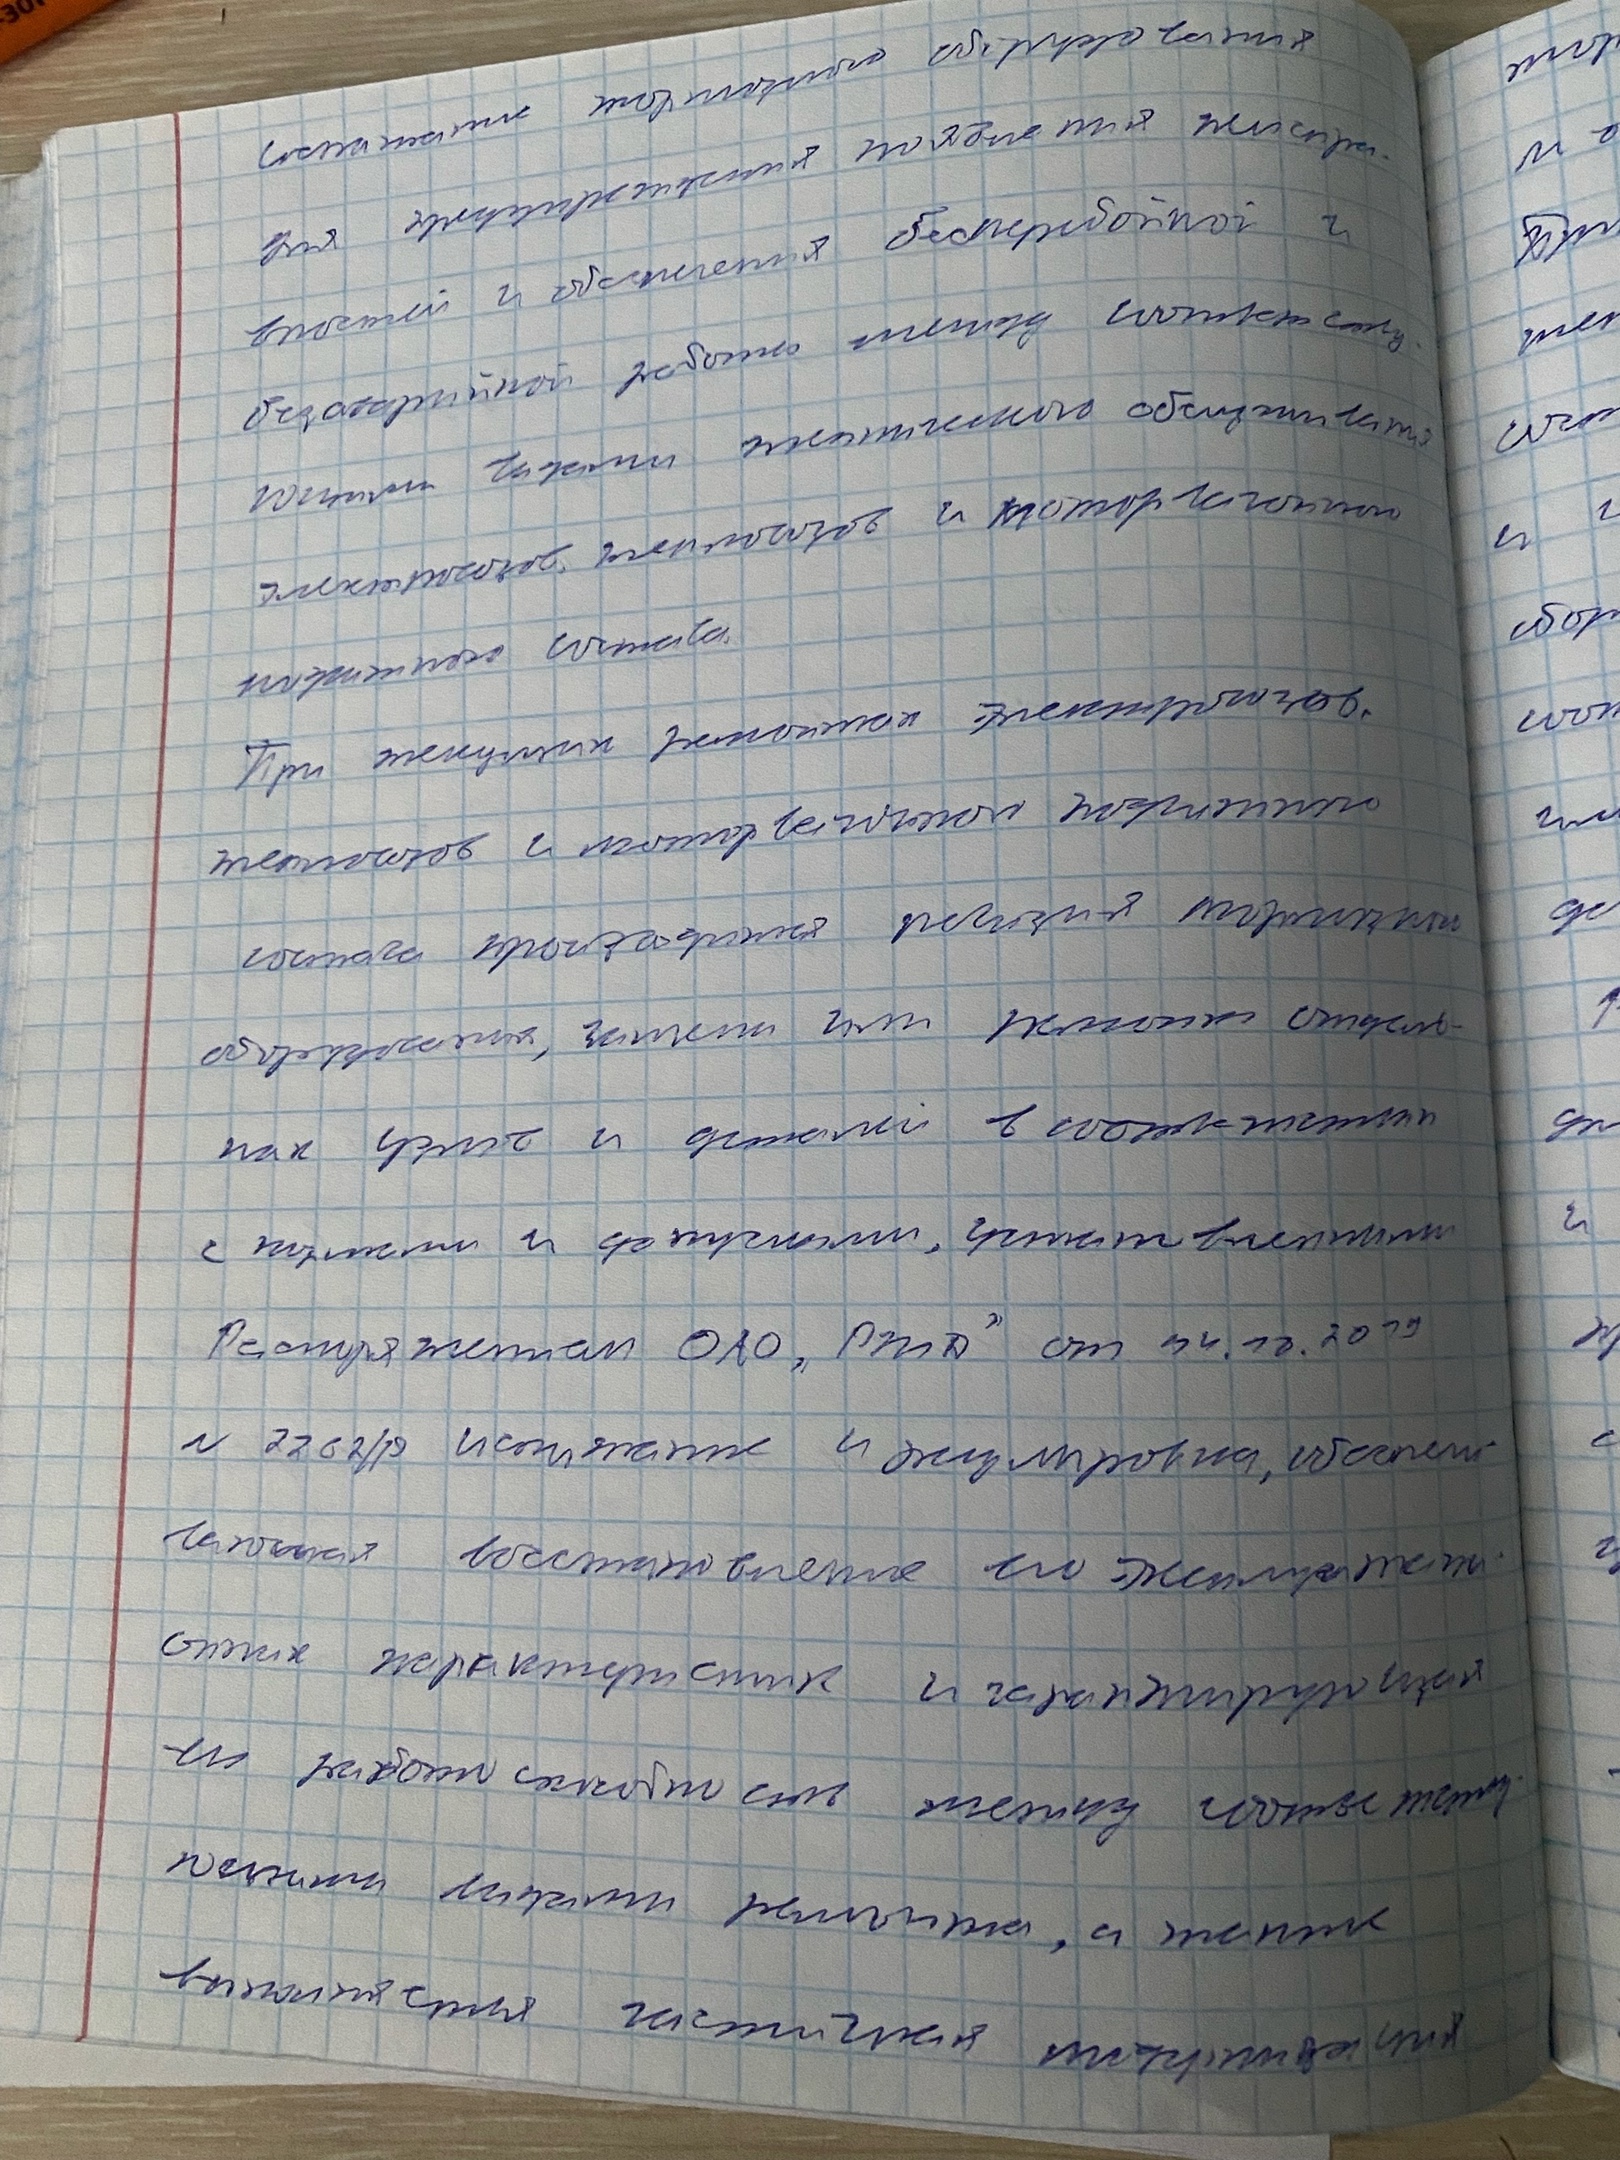 состояние тормозного оборудования
для предупреждения появления неиспра-
вностей и обеспечения бесперебойной и
безаварийной работы между соответству-
ющими видами технического обслуживания
электровозов, тепловозов и моторвагонного
подвижного состава.
При текущих ремонтах электровозов,
тепловозов и моторвагонного подвижного
состава производится ревизия тормозного
оборудования, замена или ремонт отдель-
ных узлов и деталей в соответствии
с нормами и допусками, установленными
Распоряжением ОАО „РЖД" от 14.10.2019
N 2262/р испытание и регулировка, обеспечи-
вающая восстановление его эксплуатаци-
онных характеристик и гарантирующая
его работоспособность между соответству-
ющими видами ремонта, а также
выполняется частичная модернизация